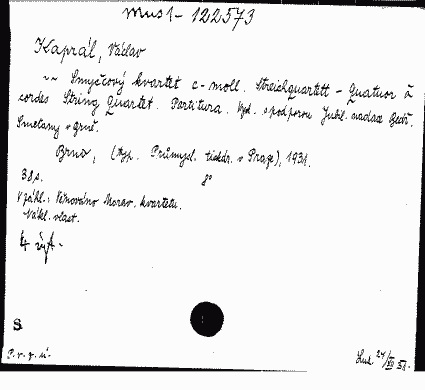 Mus 1 - 122573
Kaprál, Václav
~~ Smyčcový kvartet c-moll. Streichquartett - Quatuor à
cordes String Quartet. Partitura. Vyd. s podporou Jubil. nadace Bedř.
Smetany v Brně.
Brno, (typ. Průmysl. tiskár. v Praze), 1931.
38 s. 8°
V záhl.: Věnováno Morav. kvartetu.
Nákl. vlast.
4 výt.
S
P. v. z. ú.
24/ 51.